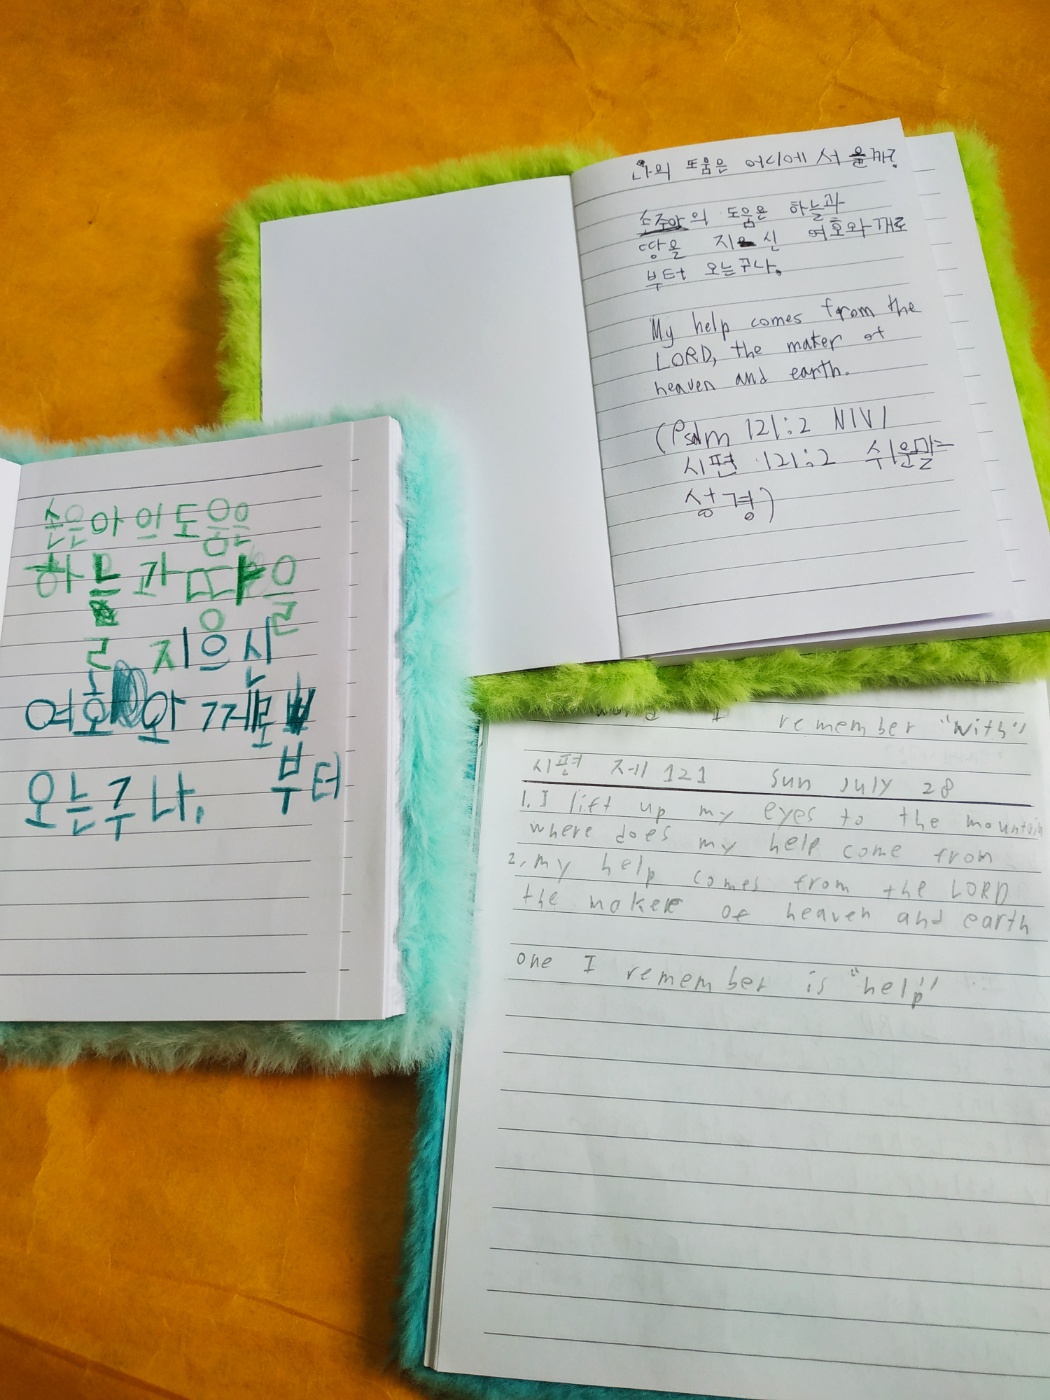 나의 도움은 어디에서 올까?
손주아의 도움은 하늘과
땅을 지으신 여호와께로
부터 오는구나.
My help comes from the
LORD, the maker of
heaven and earth.
(Psalm 121:2 NIV)
시편 121:2 쉬운말
성경)
손은아의 도움은
하늘과 땅을
지으신
여호와께로
부터
오는구나.
I remember "with"
시편 제 121 Sun July 28
1. I lift up my eyes to the mountain
where does my help come from
2. my help comes from the LORD
the maker of heaven and earth
one I remember is "help"